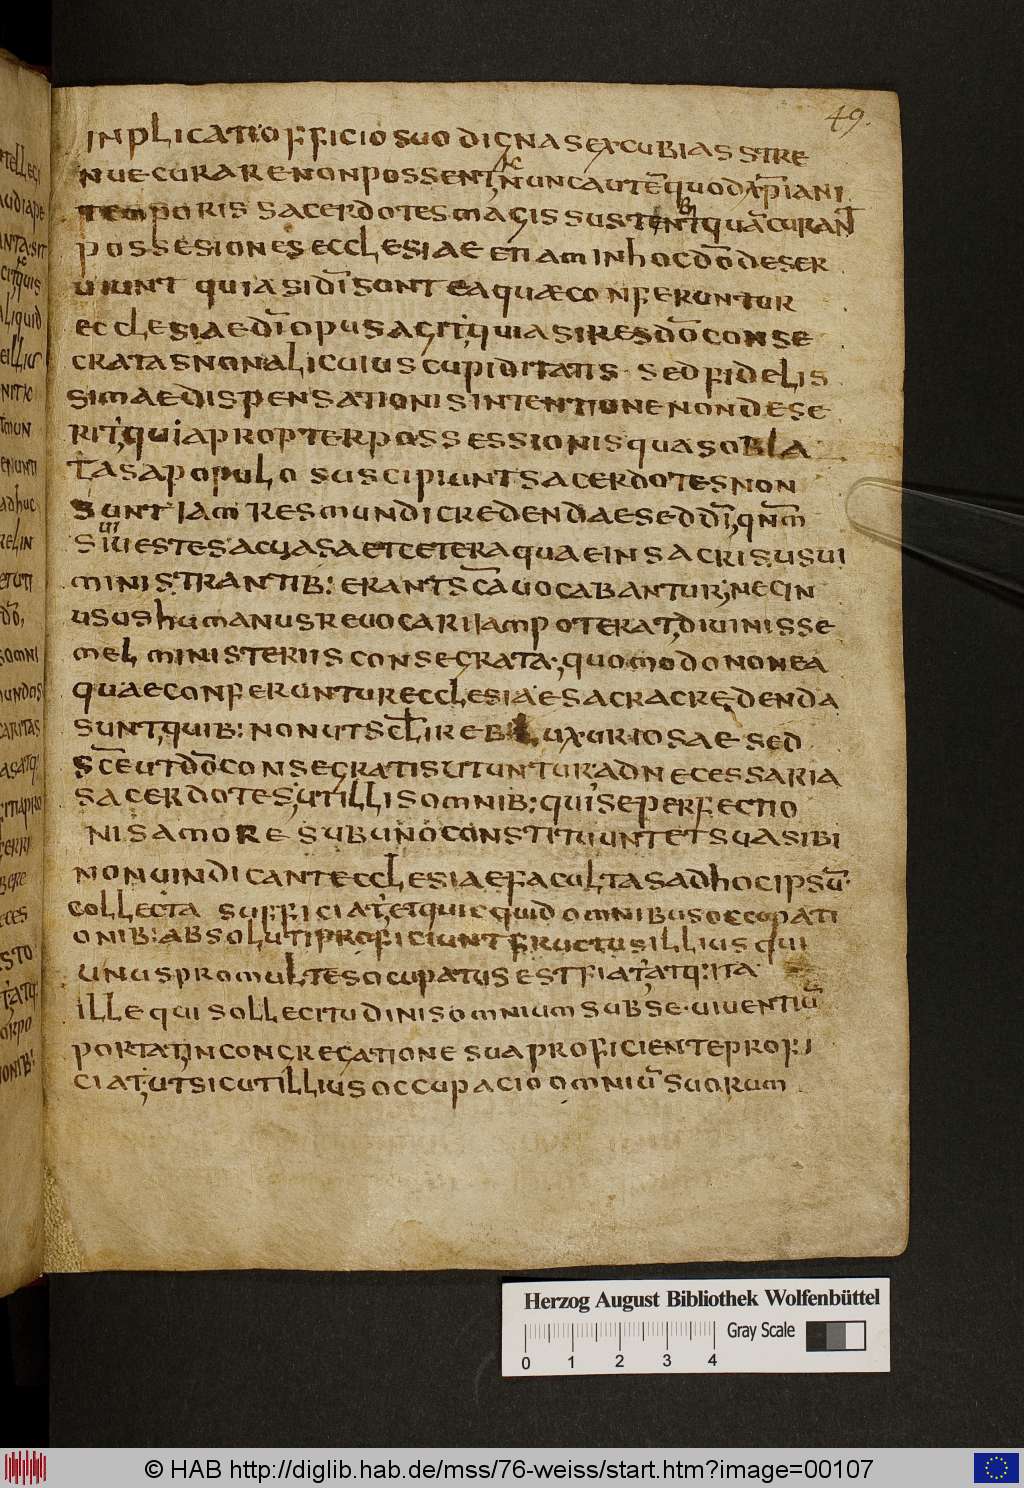 49.
INPLICATI OFFICIO SUO DIGNAS EXCUBIAS STRE
NUE CURARE NON POSSENT, NUNC AUTĒ QUOD XP̄IANI
TEMPORIS SACERDOTES MAGIS SUSTENT QUĀ CURANT
POSSESIONES ECCLESIAE ETIAM IN HOC DŌ DESER
UIUNT QUIA SI DĪ SUNT EA QUAE CONFERUNTUR
ECCLESIAE DĪ OPUS AGIT, QUIA SI RES DŌ CONSE
CRATAS NON ALICUIUS CUPIDITATIS SED FIDELIS
SIMAE DISPENSATIONIS INTENTIONE NON DESE
RIT, QUIA PROPTER POSSESSIONIS QUAS OBLA
TAS A POPULO SUSCIPIUNT SACERDOTES NON
SUNT IAM RES MUNDI CREDENDAE SED DĪ, QNM̄
SI UESTES A UASA ET CETERA QUAE IN SACRIS USUI
MINISTRANTIB: ERANT SCĀ UOCABANTUR, NEC IN
USUS HUMANUS REUOCARI IAM POTERAT, DIUINIS SE
MEL MINISTERIIS CONSEGRATA, QUOMODO NON EA
QUAE CONFERUNTUR ECCLESIAE SACRA CREDENDA
SUNT, QUIB: NON UT SCL̄I REB LUXURIOSAE SED
SCE UT DŌ CONSEGRATIS UTUNTUR AD NECESSARIA
SACERDOTES, UT ILLIS OMNIB: QUI SE PERFECTIO
NIS AMORE SUB UNO CONSTITUUNT ET SUA SIBI
NON UINDICANT ECCLESIAE FACULTAS AD HOC IPSŪ
COLLECTA SUFFICIAT, ET QUICQUID OMNIBUS OCCUPATI
ONIB: ABSOLUTI PROFICIUNT FRUCTUS ILLIUS QUI
UNUS PRO MULTES OCUPATUS EST FIAT, ATQ: ITA
ILLE QUI SOLLECITUDINIS OMNIUM SUB SE UIUENTIŪ
PORTAT, IN CONGREGATIONE SUA PROFICIENTE PROFI
CIAT, UT SICUT ILLIUS OCCUPACIO OMNIŪ SUORUM
Herzog August Bibliothek Wolfenbüttel
Gray Scale
0 1 2 3 4
© HAB http://diglib.hab.de/mss/76-weiss/start.htm?image=00107